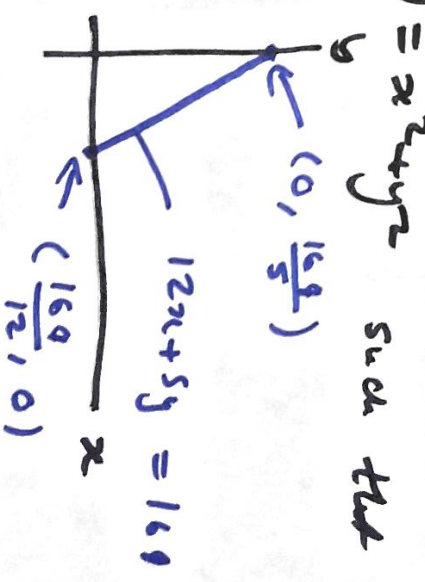 ) = x² + y² such that
y
(0, 169/5)
12x + 5y = 169
(169/12, 0)
x